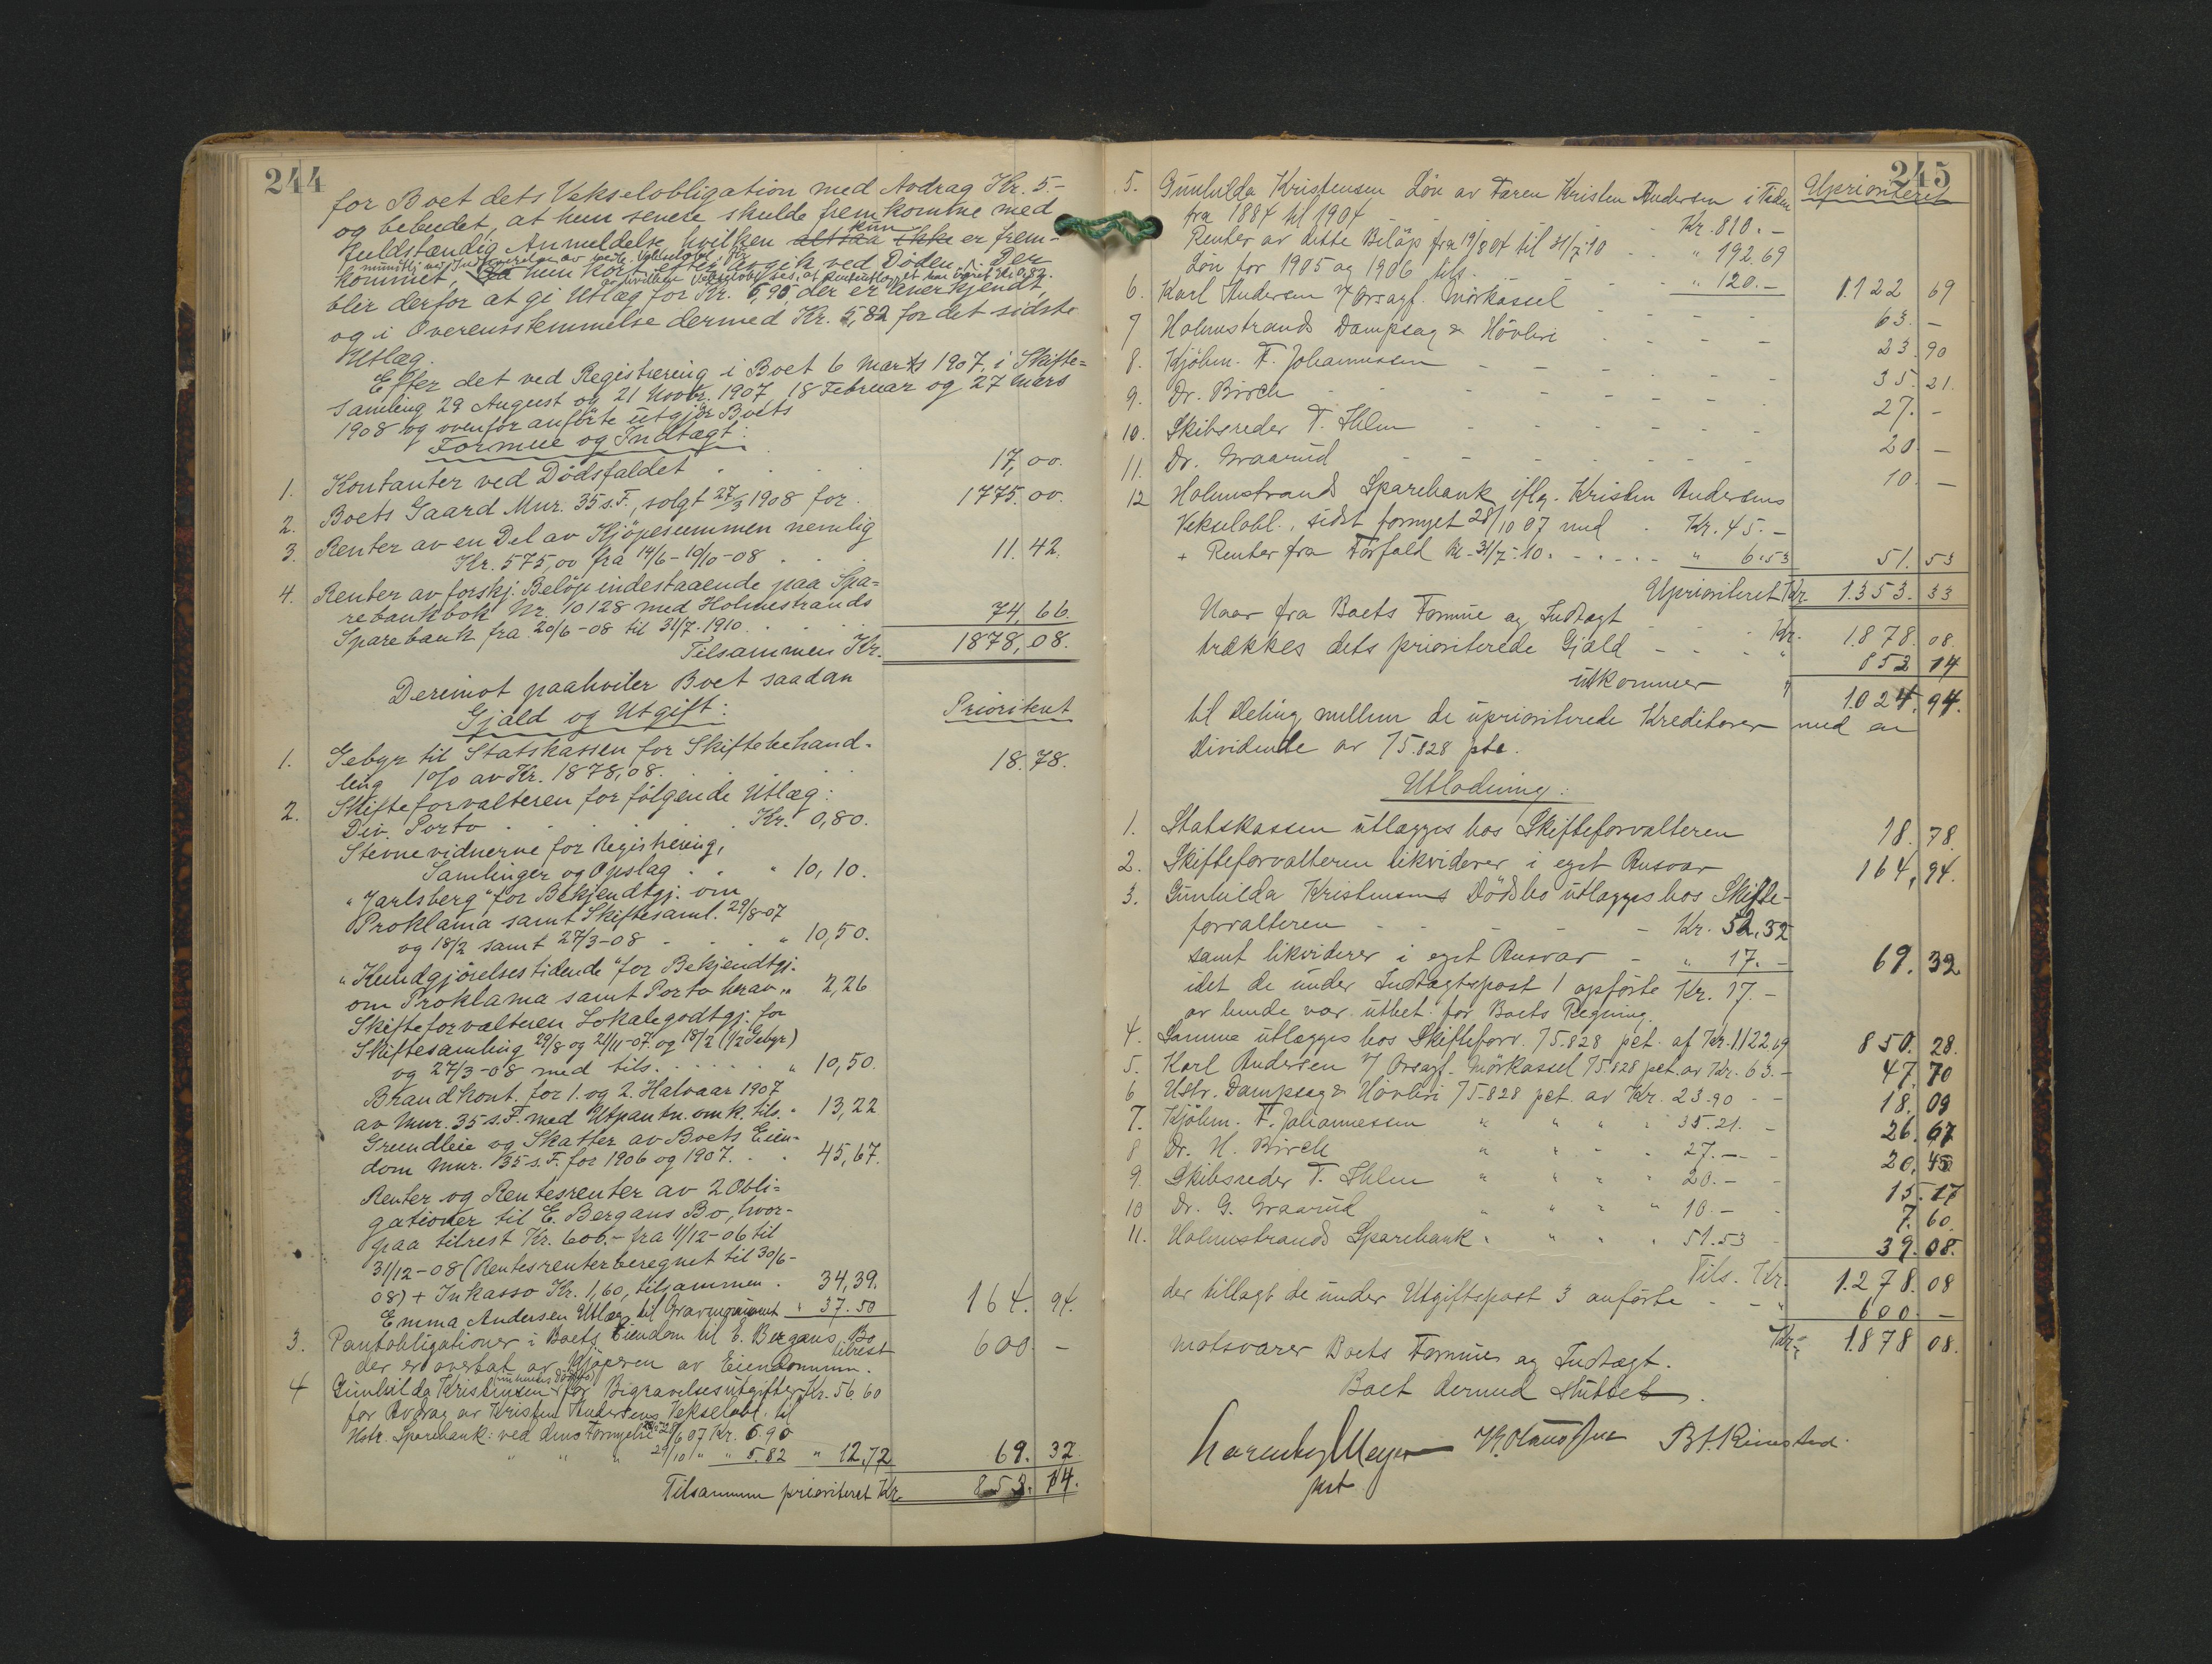 244
for Boet dets Vekselobligation med Avdrag Kr. 5.-
og bebudet, at hun senere skulde fremkomme med
kun
fuldstændig Anmeldelse, hvilken altsaa ikke er frem-
kommet, da hun kort efter avgik ved Døden. Der
blir derfor at gi Utlæg for Kr. 6,90, der er anerkjendt,
og i Overensstemmelse dermed Kr. 5,82 for det sidste
Utlæg.
Efter det ved Registrering i Boet 6 Marts 1907, i Skifte=
samling 29 August og 21 Novbr. 1907, 18 Februar og 27 Mars
1908 og ovenfor anførte utgjør Boets
Formue og Indtægt:
1. Kontanter ved Dødsfaldet . . . . 17,00.
2. Boets Gaard Mnr. 35 s.F., solgt 27/3 1908 for . 1775.00.
3 Renter av en Del av Kjöpesummen nemlig
Kr. 575,00 fra 14/6-10/10-08 . . . 11.42.
4. Renter av forskj. Beløp indestaaende paa Spa=
rebankbok Nr. 10128 med Holmestrands
Sparebank fra 20/6-08 til 31/7.1910. . . . 74,66.
Tilsammen Kr. 1878,08.
Derimot paahviler Boet saadan
Gjæld og Utgift: Prioritert
1. Gebyr til Statskassen for Skiftebehand-
ling 1 o/o av Kr. 1878,08. . . . 18.78.
2. Skifteforvalteren for følgende Utlæg:
Div. Porto . . . . . Kr. 0,80.
Stevnevidnerne for Registrering,
Samlinger og Opslag . . " 10,10.
"Jarlsberg" for Bekjendtgj. om
Proklama samt Skiftesaml. 29/8-07
og 18/2 samt 27/3-08 . . . " 10,50.
"Kundgjörelsestidende" for Bekjendtgj.
om Proklama samt Porto herav " 2,26
Skifteforvalteren Lokalegodtgj. for
Skiftesamling 29/8 og 21/11-07 og 18/2 (1/2 Gebyr)
og 27/3-08 med tils. . . . . " 10,50.
Brandkont. for 1. og 2. Halvaar 1907
av Mnr. 35 s.F. med Utpantn. omk. tils. " 13,22
Grundleie og Skatter av Boets Eien-
dom Mnr. 35 s.F. for 1906 og 1907. . . 45,67.
Renter og Rentesrenter av 2 Obli=
gationer til E. Bergans Bo, hvor-
paa tilrest Kr. 600.- fra 11/12-06 til
31/12-08 (Rentesrenter beregnet til 30/6-
08) + Inkasso Kr. 1,60, tilsammen . 34,39.
Emma Andersen Utlæg til Gravmonument " 37.50 164. 94.
3. Pantobligationer i Boets Eiendom til E. Bergans Bo
tilrest 600 -
der er overtat av Kjøperen av Eiendommen.
4 Gunhilda Kristensen for Begravelsesutgifter Kr. 56.60
for Avdrag av Kristen Andersens Vekselobl. til
Hstr. Sparebank: ved dens Fornyelse 28/6 07 Kr. 6.90
" " " 29/10 " " 5.82 " 12.72 69. 32
Tilsammen prioriteret Kr. 853. 14.
245
Uprioriteret
5. Gunhilda Kristensen Løn av Faren Kristen Andersen i Tiden
fra 1884 til 1904 . . . Kr. 810.-
Renter av dette Beløp fra 19/8 04 til 31/7-10 . . " 192.69
Løn for 1905 og 1906 tils. . . . " 120.- 1.122 69
6. Karl Andersen v/ Ovsagf. Mörkassel 63. -
7 Holmstrands Dampsag & Hövleri 23.90
8. Kjöbm. F. Johannessen 35.21.
9. Dr. Birch 27. -
10. Skibsreder T. Ihlen 20 -
11. Dr. Graarud 10. -
12 Holmstrands Sparebank iflg. Kristen Andersens
Vekselobl., sidst fornyet 28/10 07 med . Kr. 45.-
+ Renter fra Forfald til 31/7-10. " 6.53 51. 53
Uprioriteret Kr. 1.353. 33
Naar fra Boets Formue og Indtægt Kr. 1.878 08.
trækkes dets prioriterede Gjæld " 853 14
utkommer " 1.024. 94.
til Deling mellem de uprioriterede Kreditorer med en
Dividende av 75.828 pct.
Utlodning:
1. Statskassen utlægges hos Skifteforvalteren 18. 78.
2. Skifteforvalteren likviderer i eget Ansvar 164, 94.
3. Gunhilda Kristensens Dødsbo utlægges hos Skifte-
forvalteren - Kr. 52,32
samt likviderer i eget Ansvar - " 17.- 69. 32
idet de under Indtægtspost 1 opførte Kr. 17.-
av hende var uthet for Boets Regning.
4. Samme utlægges hos Skifteforv. 75.828 pct. af Kr. 1122 69 850. 28.
5. Karl Andersen v/ Ovsagf. Mörkassel 75.828 pct. av Kr. 63.- 47. 70
6 Hstr. Dampsag & Hövleri 75.828 pct. av Kr. 23.90 - 18. 09
7. Kjöbm. F. Johannessen " " " " 35.21. - 26. 67
8 Dr. H. Birch " " " " 27.- - 20. 45
9. Skibsreder T. Ihlen " " " " 20.- - 15.17
10 Dr. G. Graarud " " " " 10.- - 7. 60.
11. Holmstrands Sparebank " " " " 51.53 - 39. 08.
Tils. Kr. 1.278. 08
der tillagt de under Utgiftspost 3 anførte - - " 600 -
motsvarer Boets Formue og Indtægt. Kr. 1.878 08.
Boet dermed sluttet.
Meyer